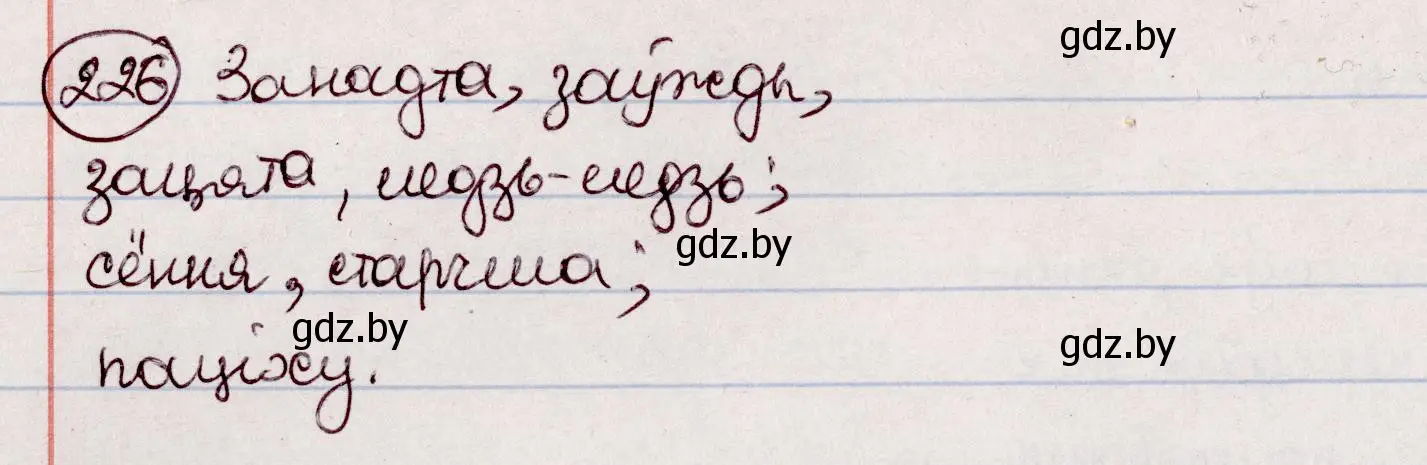 226 Занадта, заўжды,
зацята, ледзь-ледзь;
сёння, старчма;
паціху.
gdz.by
gdz.by
gdz.by
gdz.by